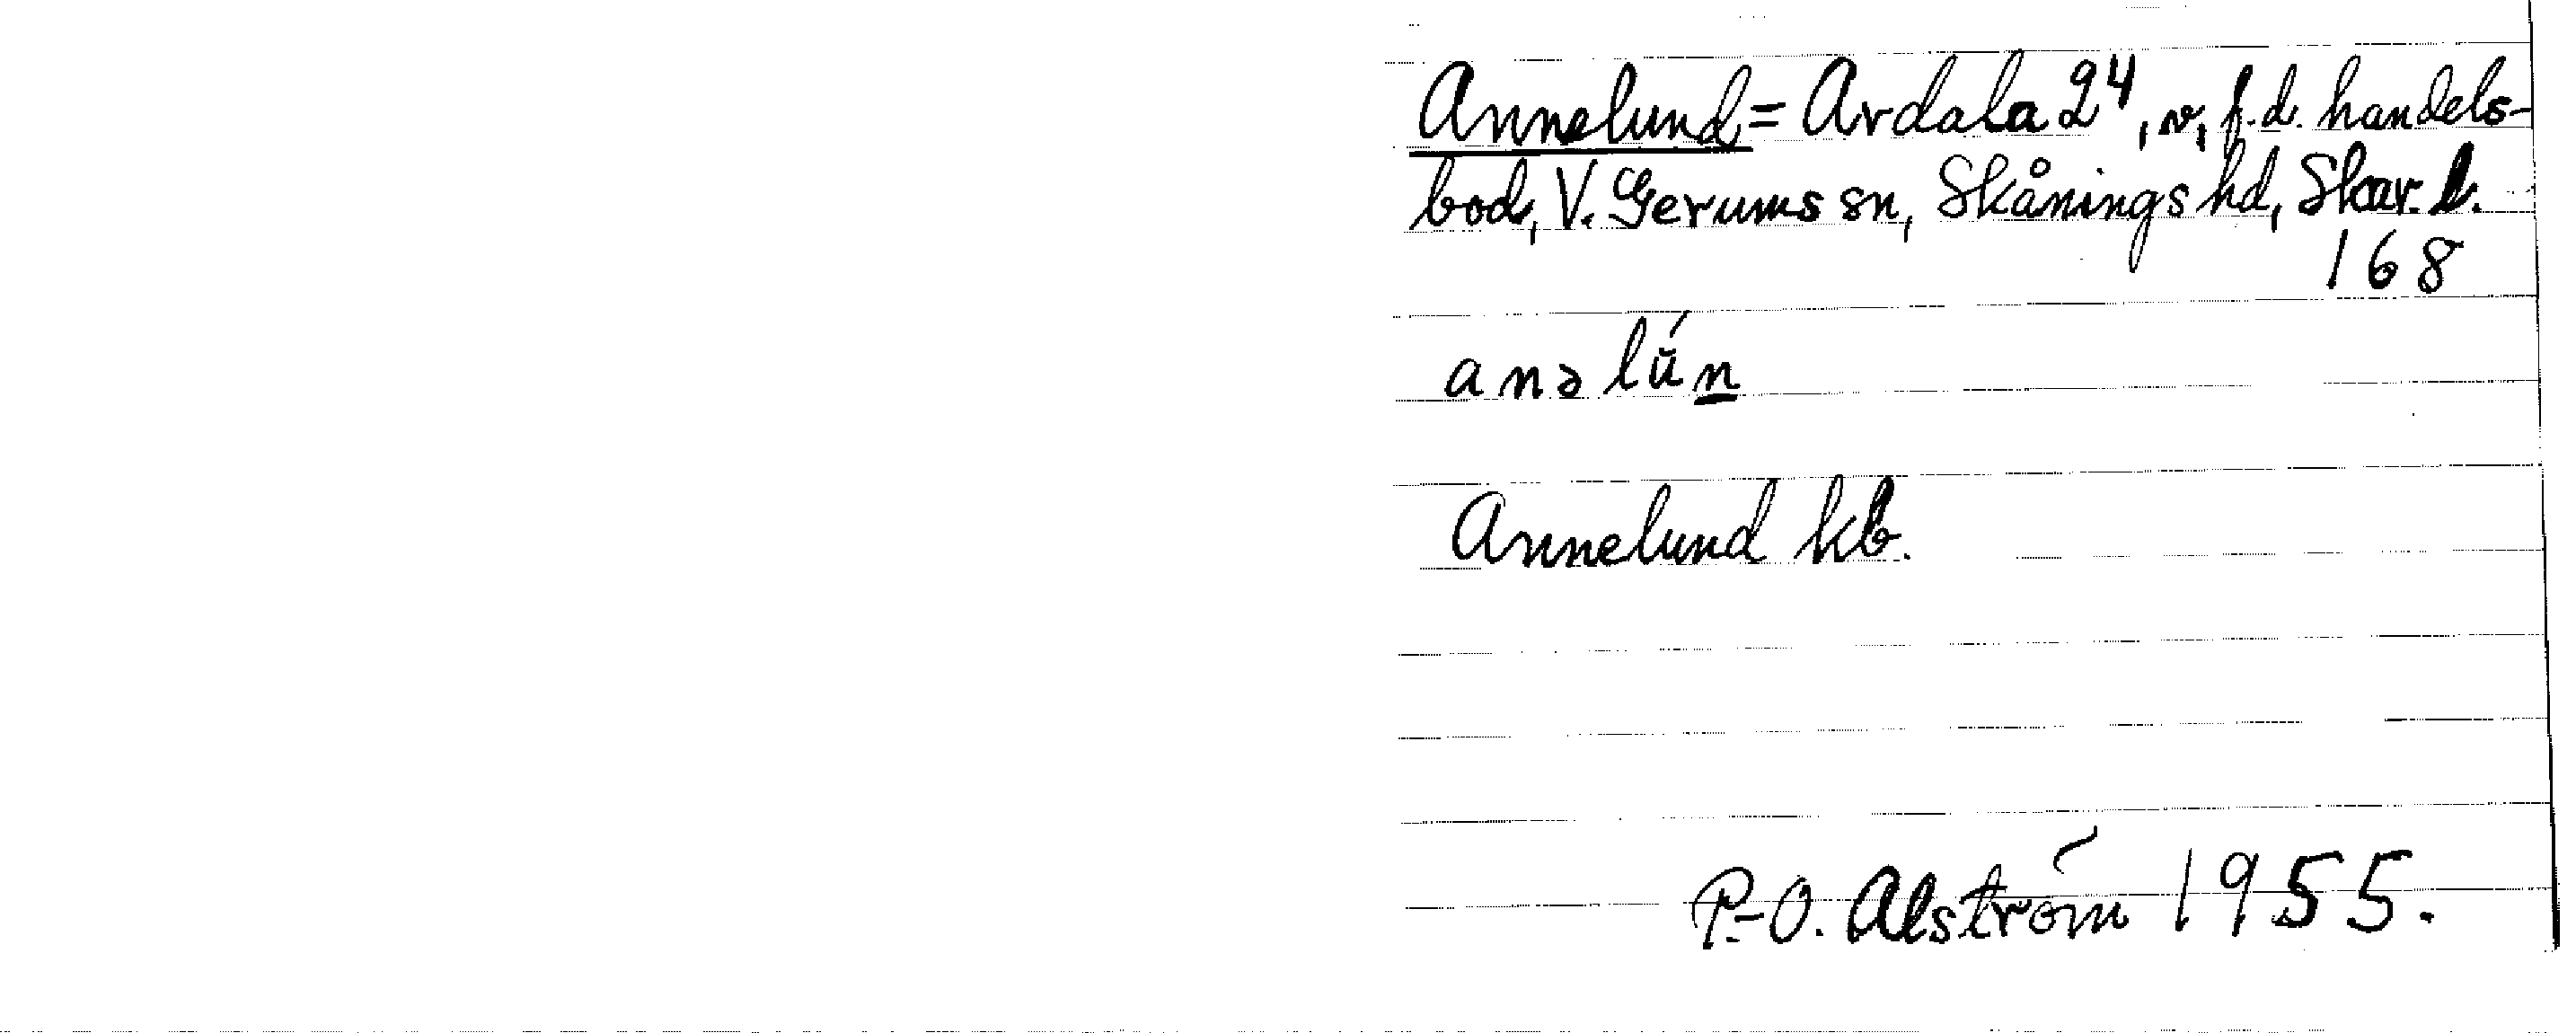 Annelund = Ardala 2⁴, v, f.d. handels-
bod, V. Gerums sn, Skånings hd, Skar. l.
168
anə lŭ́n
Annelund kb.
P.-O. Alström 1955.